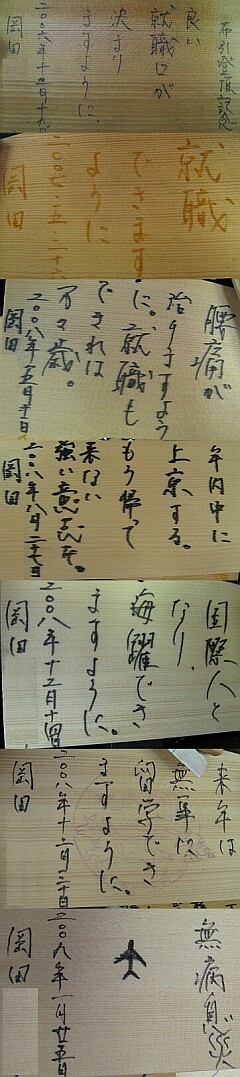 布引登頂記念
良い
就職口が
決まり
ますように。
二〇〇六年十二月十九日
岡田
就職
できます
ように
二〇〇七・五・二十六
岡田
腰痛が
治りますよう
に。就職も
できれば
万々歳。
二〇〇八年五月十日
岡田
年内中に
上京する。
もう帰って
来ない
強い意志を。
二〇〇八年八月二十七日
岡田
国際人と
なり、
海躍でき
ますように。
二〇〇八年十二月十四日
岡田
来年は
無事に
留学でき
ますように。
二〇〇八年十二月二十日
岡田
無病息災
二〇〇九年一月廿五日
岡田